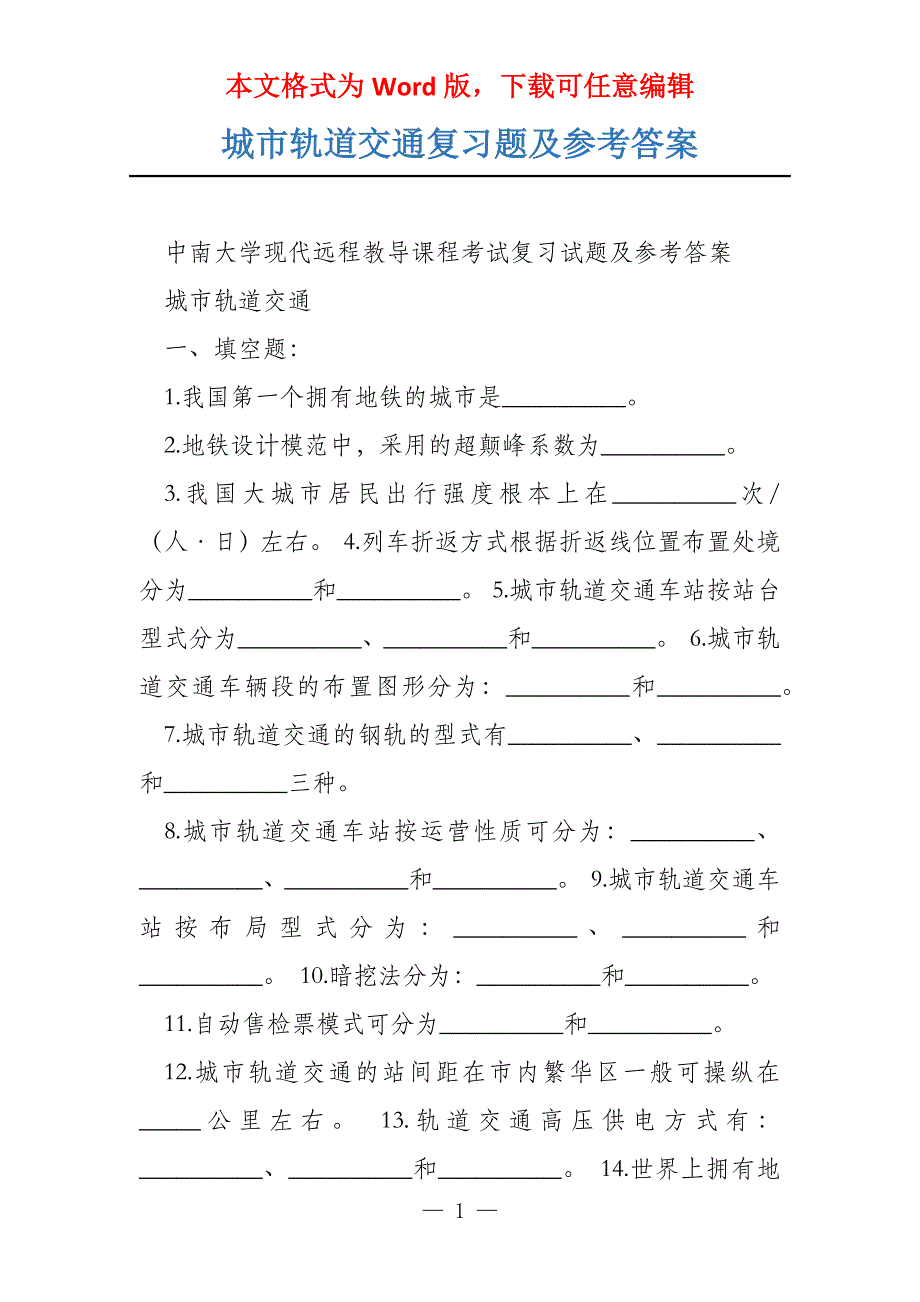 本文格式为 Word 版，下载可任意编辑
城市轨道交通复习题及参考答案
中南大学现代远程教导课程考试复习试题及参考答案
城市轨道交通
一、填空题：
1.我国第一个拥有地铁的城市是__________。
2.地铁设计模范中，采用的超颠峰系数为__________。
3.我国大城市居民出行强度根本上在__________次/
（人·日）左右。 4.列车折返方式根据折返线位置布置处境
分为__________和__________。 5.城市轨道交通车站按站台
型式分为__________、__________和__________。 6.城市轨
道交通车辆段的布置图形分为：__________和__________。
7.城市轨道交通的钢轨的型式有__________、__________
和__________三种。
8.城市轨道交通车站按运营性质可分为：__________、
__________、__________和__________。 9.城市轨道交通车
站按布局型式分为：__________、__________和
__________。 10.暗挖法分为：__________和__________。
11.自动售检票模式可分为__________和__________。
12.城市轨道交通的站间距在市内繁华区一般可操纵在
_____公里左右。 13.轨道交通高压供电方式有：
__________、__________和__________。 14.世界上拥有地
— 1 —